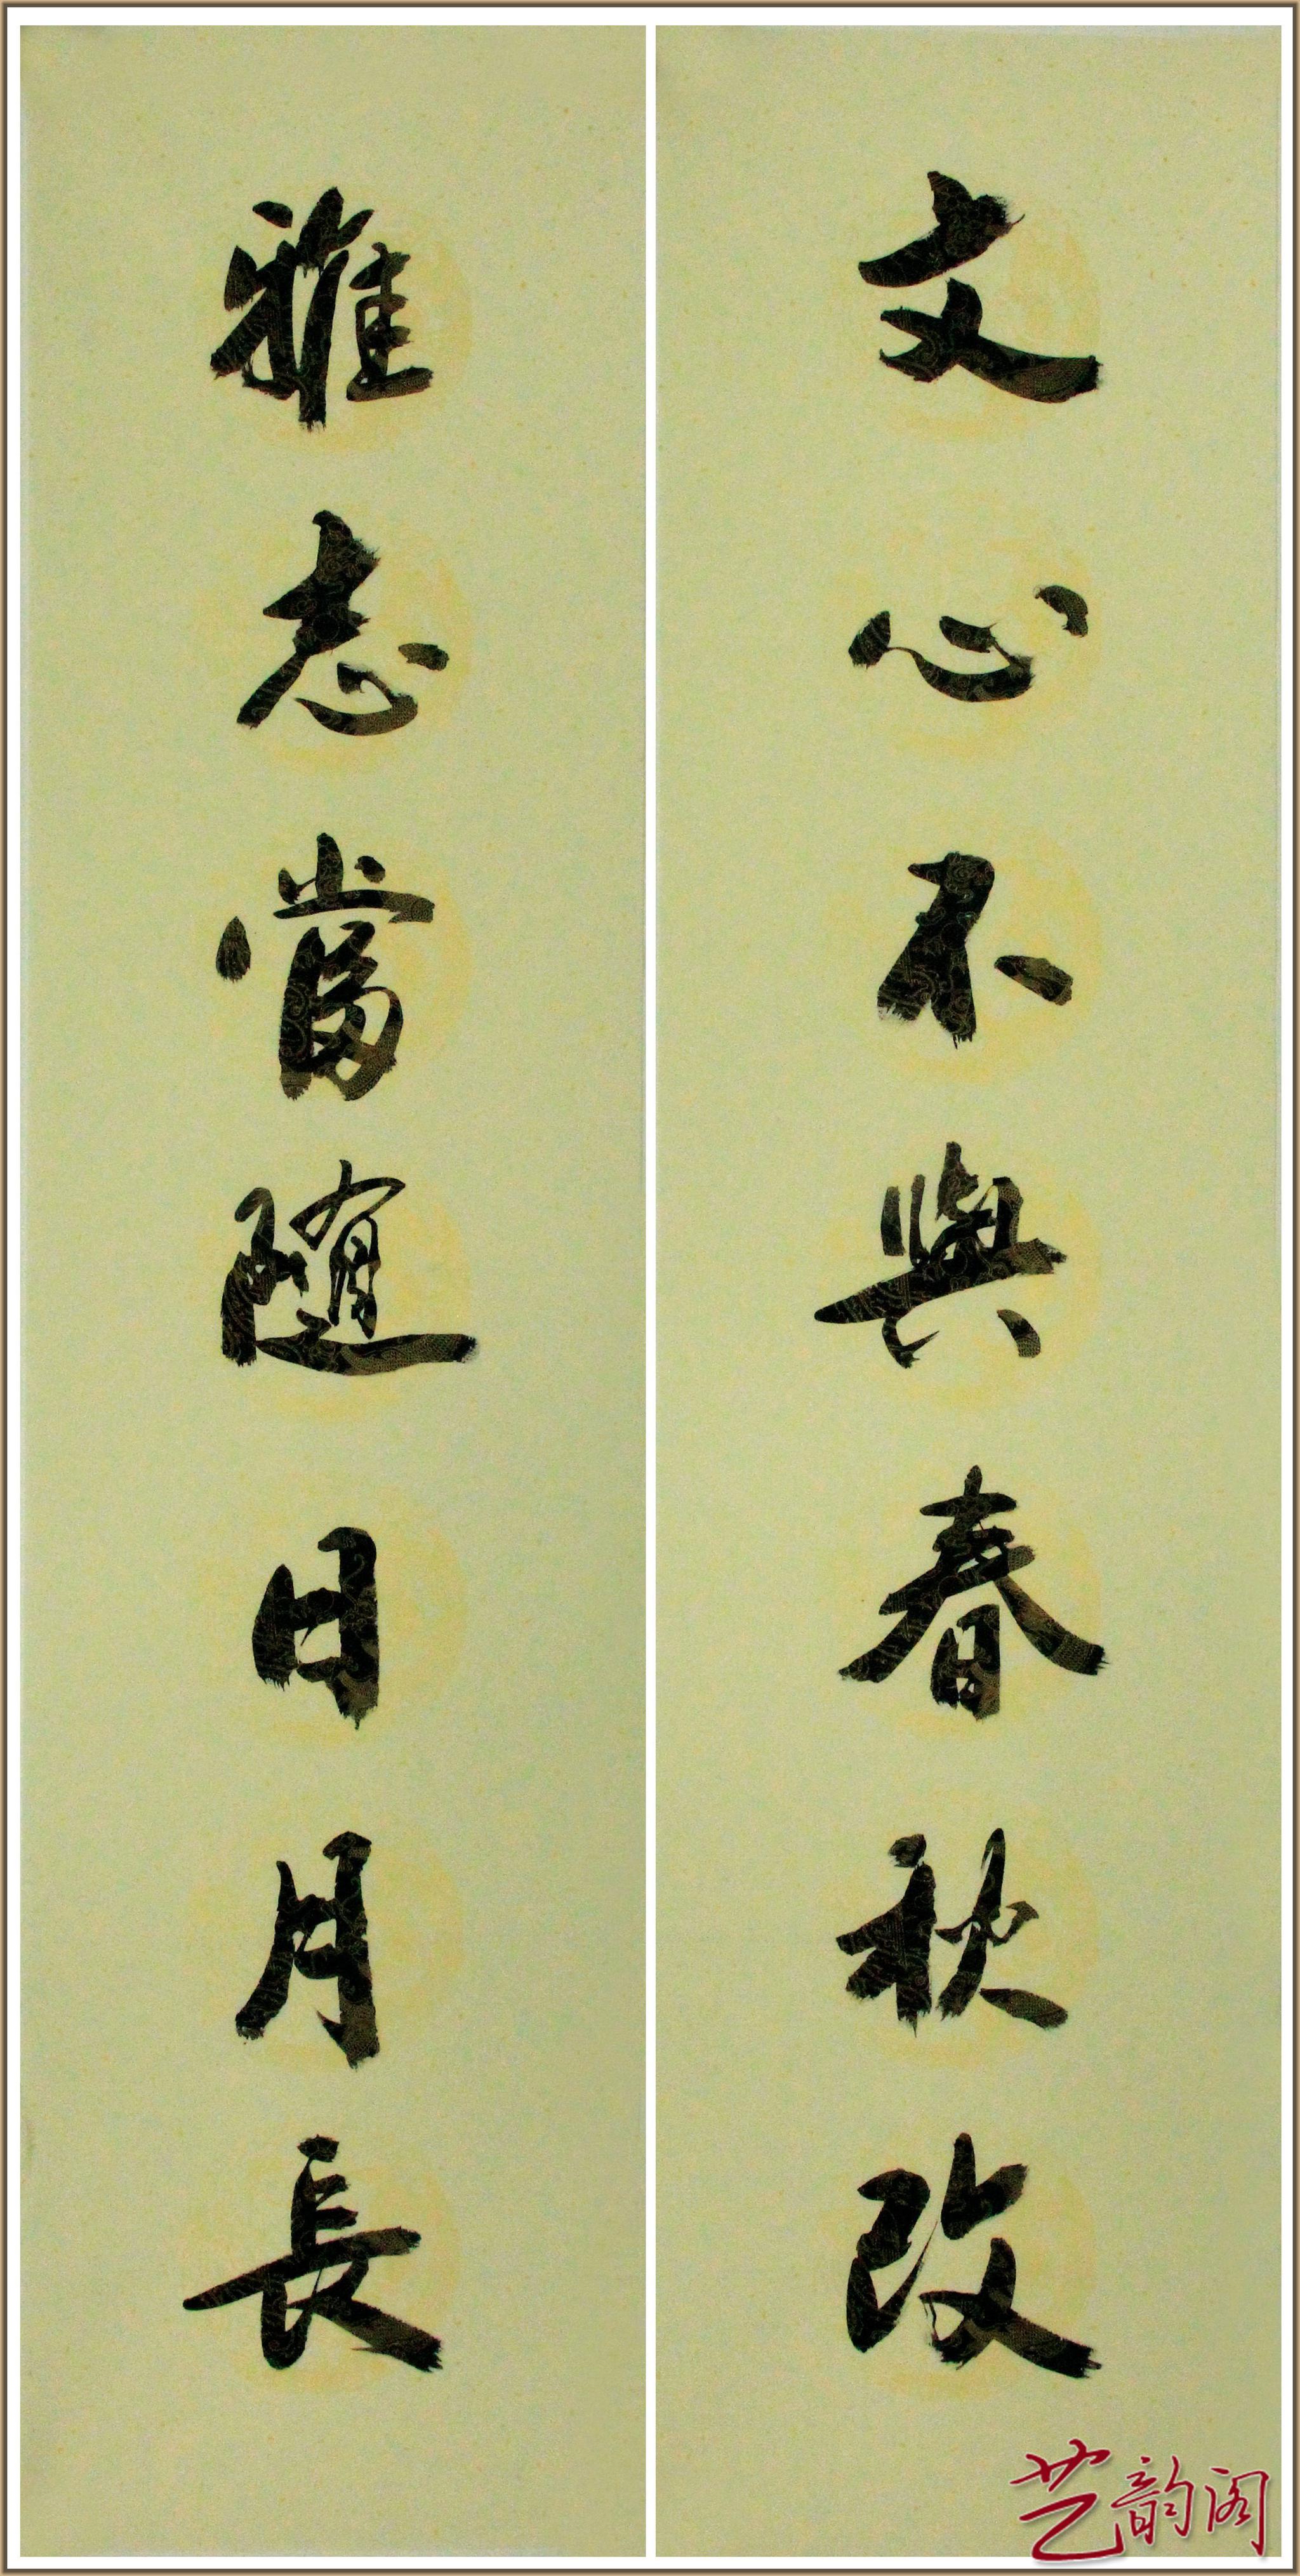 文心不與春秋改
雅志當隨日月長
艺韵阁